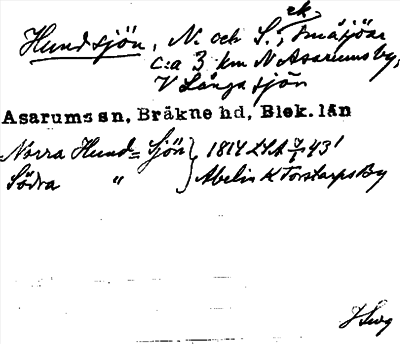 ek.
Hundsjön, N. och S., småsjöar
c:a 3 km N Asarums by,
V Långasjön
Asarums sn, Bräkne hd, Blek. län
Norra Hund= Sjön } 1814 LSA 43'
Södra " Abelin K Torstarps By